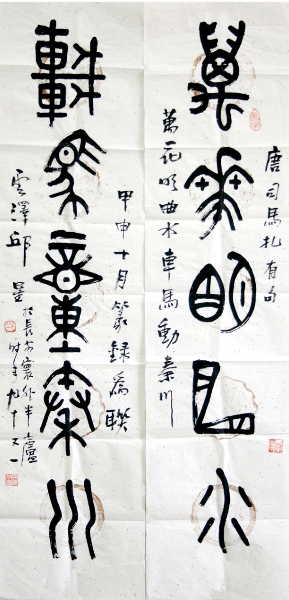 唐司馬札有句
萬花明曲水
萬花明曲水車馬動秦川
甲申十月篆録為聯
車馬動秦川
雲澤邱星
於長安寰外半廬
時年九十又一